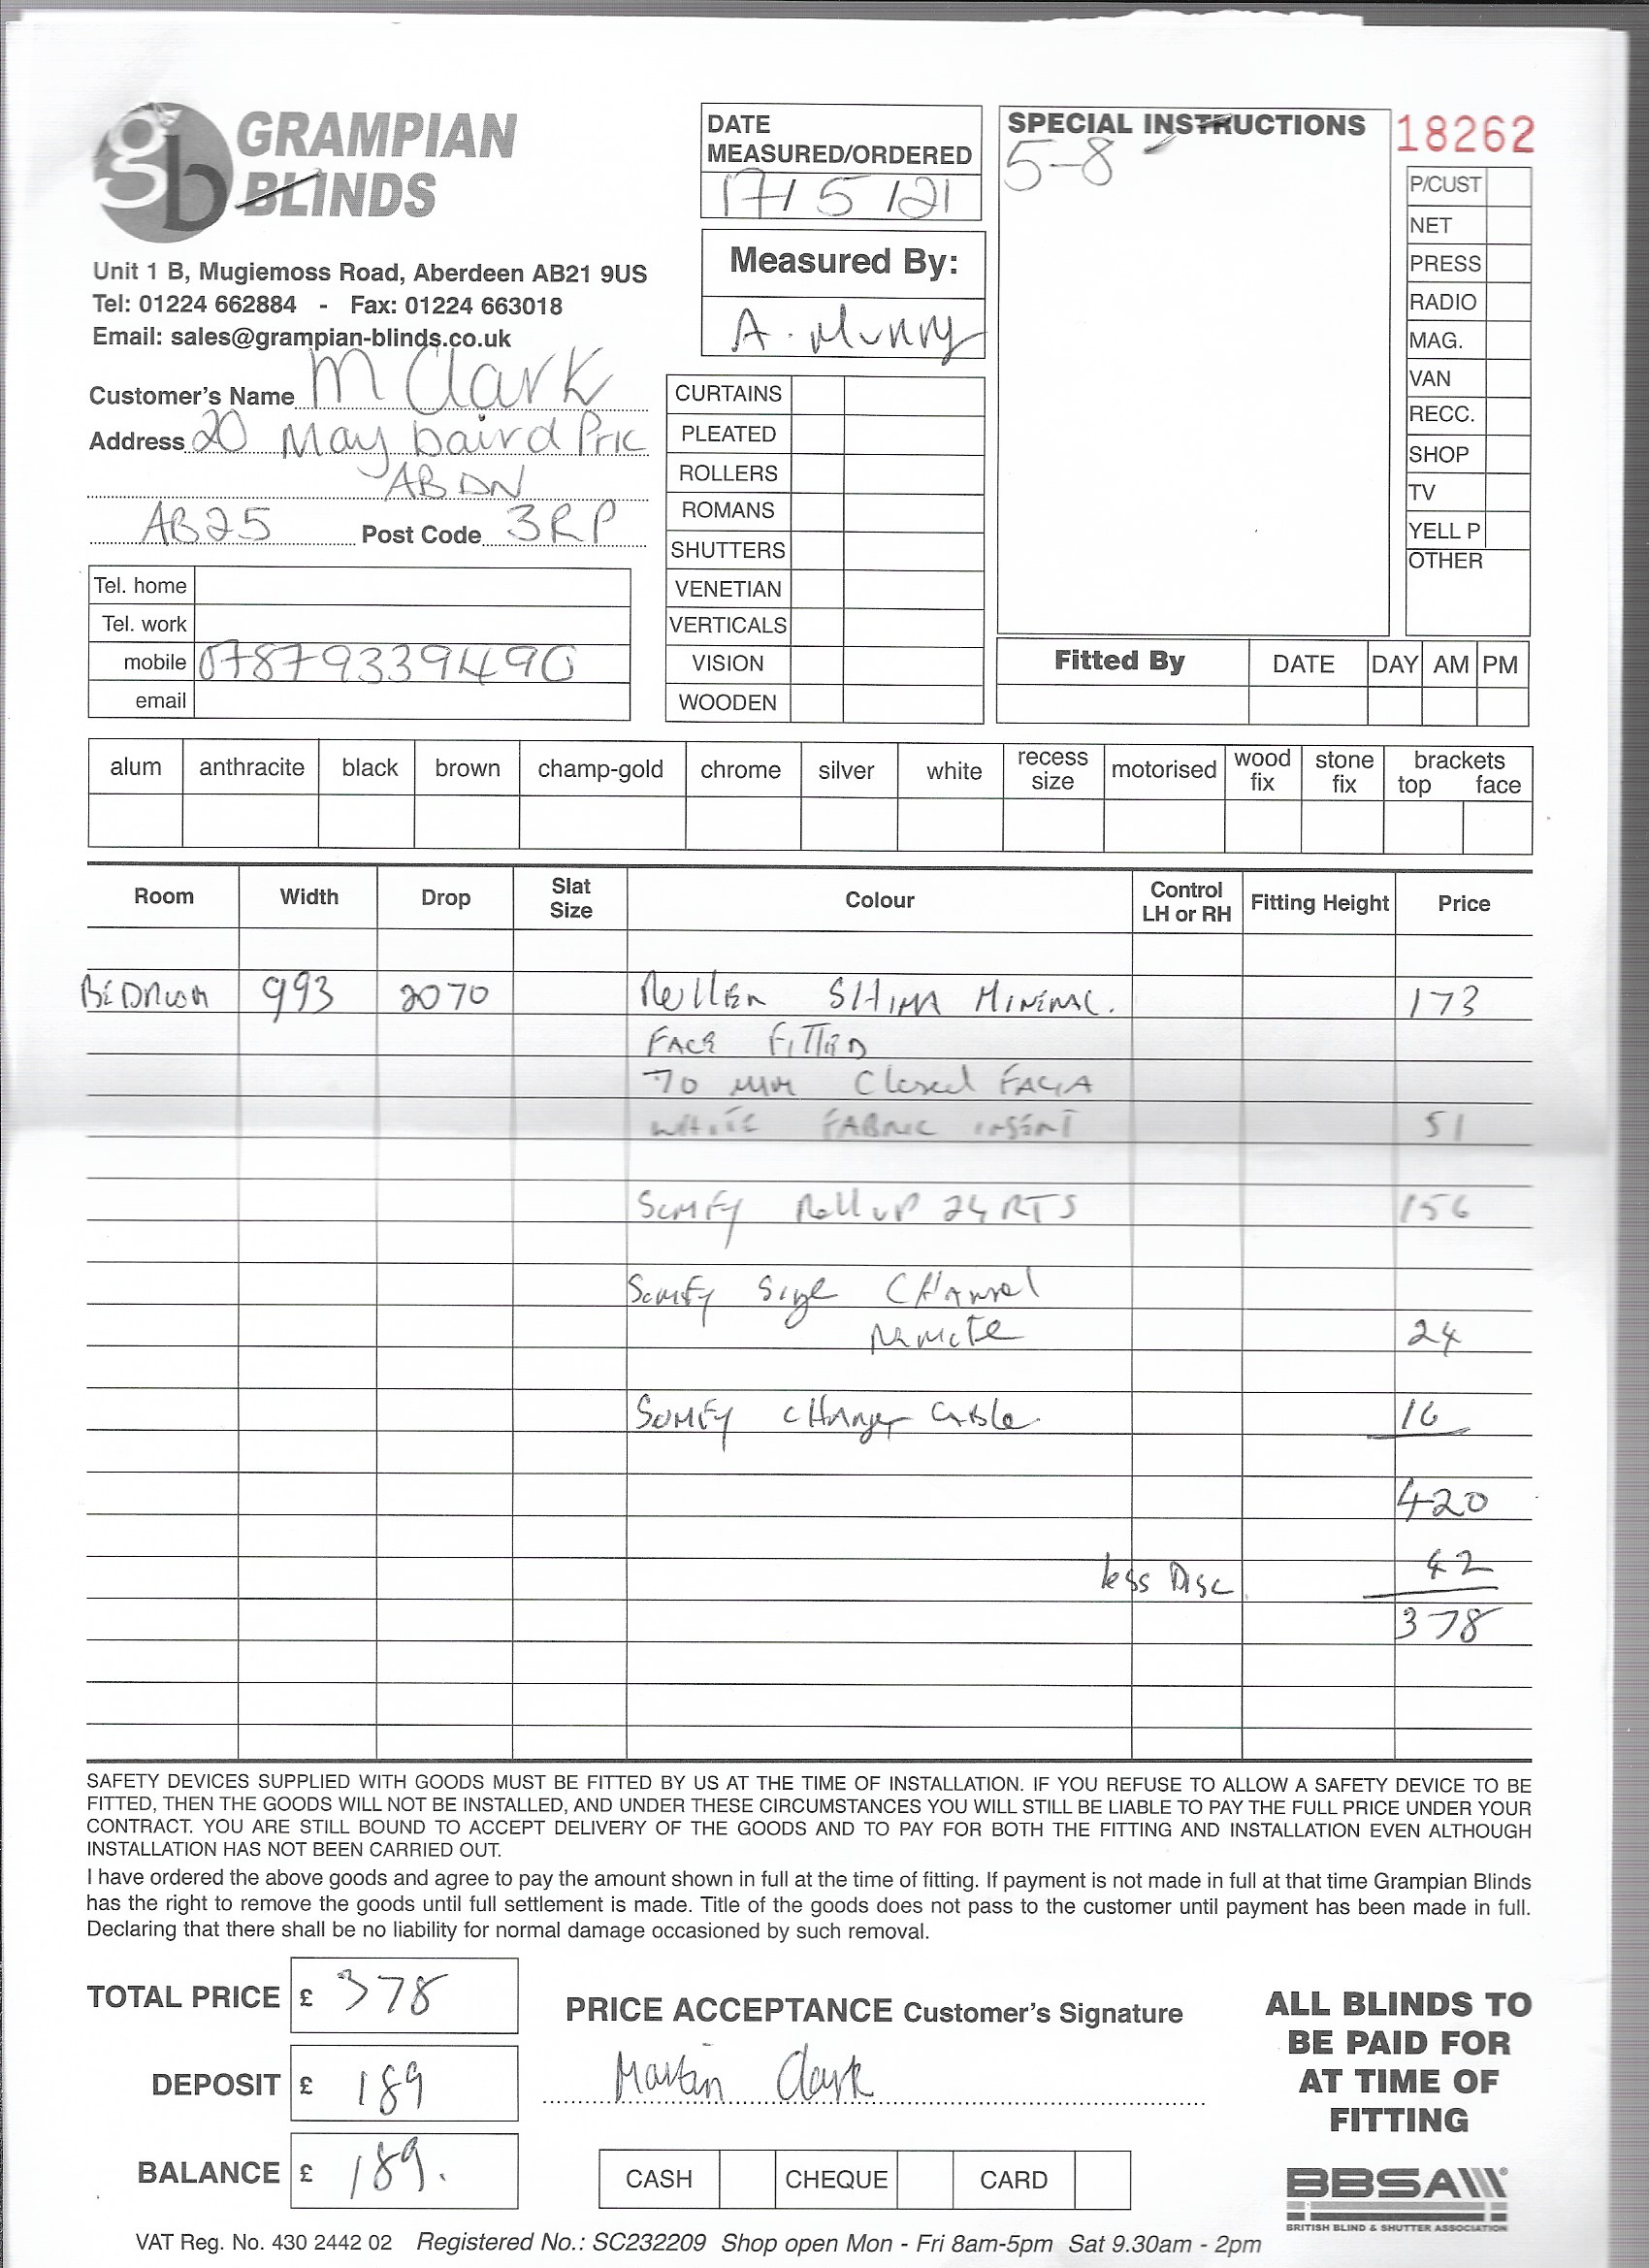 gb GRAMPIAN
BLINDS
Unit 1 B, Mugiemoss Road, Aberdeen AB21 9US
Tel: 01224 662884 - Fax: 01224 663018
Email: sales@grampian-blinds.co.uk
DATE
MEASURED/ORDERED
17/5/21
Measured By:
A. Murray
SPECIAL INSTRUCTIONS
5-8
18262
P/CUST
NET
PRESS
RADIO
MAG.
VAN
RECC.
SHOP
TV
YELL P
OTHER
Customer's Name M Clark
Address 20 May baird
ABDN
AB25 Post Code 3RP
Tel. home
Tel. work
mobile 07879339490
email
CURTAINS
PLEATED
ROLLERS
ROMANS
SHUTTERS
VENETIAN
VERTICALS
VISION
WOODEN
Fitted By DATE DAY AM PM
alum anthracite black brown champ-gold chrome silver white recess size motorised wood fix stone fix brackets top face
Room Width Drop Slat Size Colour Control LH or RH Fitting Height Price
BEDROOM 993 2070 ROLLER SHIMA MINERAL. 173
FACE FITTED
70 mm Closed FACIA
WHITE FABRIC INSERT 51
SOMFY Roll UP 24 RTS 156
SOMFY Single CHannel
Remote 24
SOMFY CHarger Cable. 16
420
less Disc 42
378
SAFETY DEVICES SUPPLIED WITH GOODS MUST BE FITTED BY US AT THE TIME OF INSTALLATION. IF YOU REFUSE TO ALLOW A SAFETY DEVICE TO BE
FITTED, THEN THE GOODS WILL NOT BE INSTALLED, AND UNDER THESE CIRCUMSTANCES YOU WILL STILL BE LIABLE TO PAY THE FULL PRICE UNDER YOUR
CONTRACT. YOU ARE STILL BOUND TO ACCEPT DELIVERY OF THE GOODS AND TO PAY FOR BOTH THE FITTING AND INSTALLATION EVEN ALTHOUGH
INSTALLATION HAS NOT BEEN CARRIED OUT.
I have ordered the above goods and agree to pay the amount shown in full at the time of fitting. If payment is not made in full at that time Grampian Blinds
has the right to remove the goods until full settlement is made. Title of the goods does not pass to the customer until payment has been made in full.
Declaring that there shall be no liability for normal damage occasioned by such removal.
TOTAL PRICE £ 378
DEPOSIT £ 189
BALANCE £ 189.
PRICE ACCEPTANCE Customer's Signature
Martin Clark
CASH CHEQUE CARD
ALL BLINDS TO
BE PAID FOR
AT TIME OF
FITTING
BBSA
BRITISH BLIND & SHUTTER ASSOCIATION
VAT Reg. No. 430 2442 02 Registered No.: SC232209 Shop open Mon - Fri 8am-5pm Sat 9.30am - 2pm